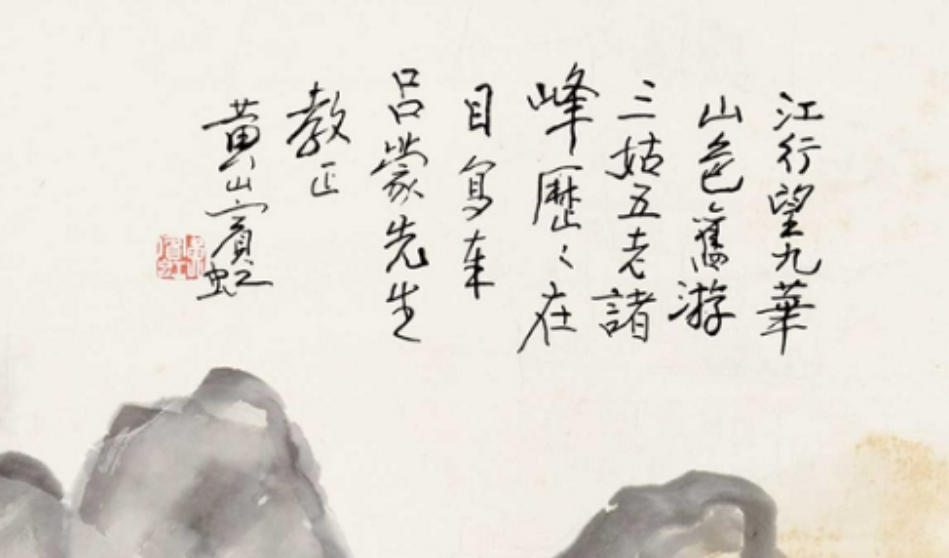 江行望九華
山色舊游
三姑五老諸
峰歷〻在
目寫奉
呂蒙先生
教正
黃山賓虹